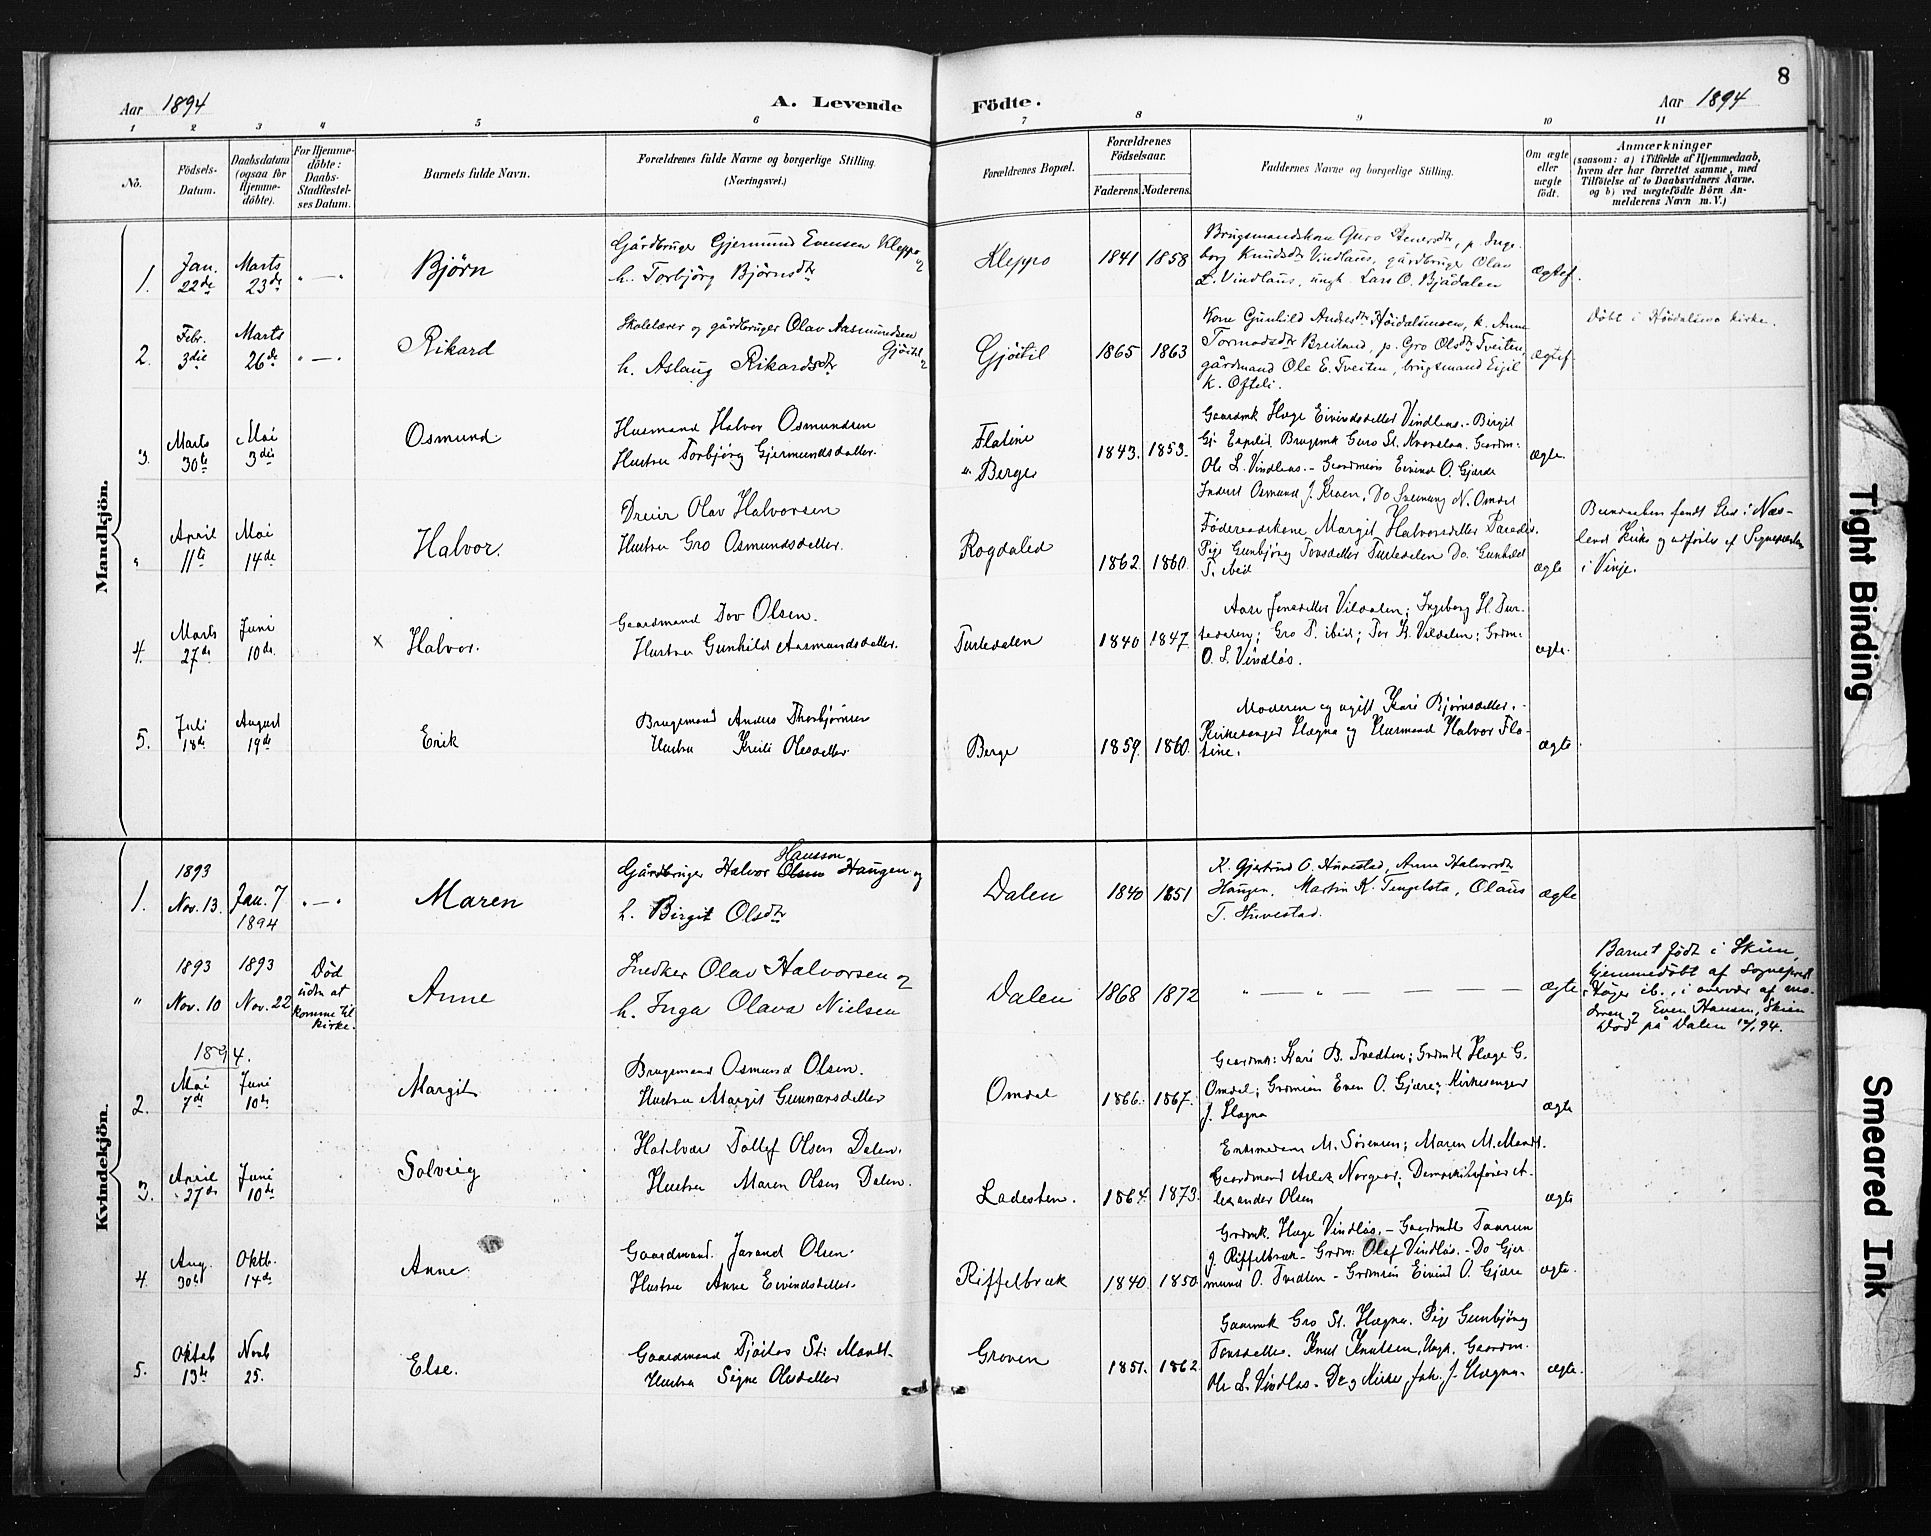 8
Aar 1894
A. Levende Födte.
Aar 1894
1 2 3 4 5 6 7 8 9 10 11
No.
Födsels-
Datum.
Daabsdatum
(ogsaa for
Hjemme-
döbte).
For Hjemme-
döbte:
Daabs-
Stadfæstel-
ses Datum.
Barnets fulde Navn.
Forældrenes fulde Navne og borgerlige Stilling.
(Næringsvei.)
Forældrenes Bopæl.
Forældrenes
Födselsaar.
Faderens. Moderens.
Faddernes Navne og borgerlige Stilling.
Om ægte
eller
uægte
født.
Anmærkninger
(saasom: a) i Tilfælde af Hjemmedaab,
hvem der har forrettet samme, med
Tilföielse af to Daabsvidners Navne.
og b) ved uægtefödte Börn An-
melderens Navn m. V.)
Mandkjön.
1.
Jan.
22de
Marts
23de
" — "
Bjørn
Gårdbruger Gjermund Evensen Kleppo og
h. Torbjörg Björnsdtr
Kleppo
1841 1858
Brugsmandskone Guro Stenersdtr, p. Inge-
borg Knudsdtr Vindlaus, gårdbruger Olav
L. Vindlaus, ungk. Lars O. Bjådalen
ægtef.
2.
Febr.
3die
Marts
26de
" — "
Rikard
Skolelærer og gårdbruger Olav Aasmundsen
Gjøitil og
h. Aslaug Rikardsdtr
Gjøitil
1865 1863
Kone Gunhild Andersdtr Höidalsmoen, k. Anne
Tormodsdtr Breiland, p. Gro Olsdtr Tveiten,
gårdmand Ole E. Tveiten, brugsmand Eigil
K. Ofteli.
ægtef.
Døbt i Höidalsmo kirke.
3.
Marts
30te
Mai
3die
Osmund
Husmand Halvor Osmundsen
Hustru Torbjörg Gjermundsdatter.
Flatine
" Berge
1843. 1853.
Gaardmk Hæge Eivindsdatter Vindlaus. - Birgit
Gj. Espelid Brugsmk Guro St. Gaardm:
Ole L. Vindlaus. - Gaardmein Eivind O. Gjærde
ægte.
"
April
11te
Mai
14de
Halvor.
Dreier Olav Halvorsen
Hustru Gro Osmundsdatter.
Rogdalid
1862. 1860.
Inderst Osmund J. Do N. Omdal
Föderaadskone Margit Halvorsdatter
Pige Gunbjörg Tovsdatter Turtedalen Do. Gunhild
T. ibid
ægte
Barnedaaben fandt Sted i Næs-
land Kirke og udførtes af Sognepræsten
i Vinje.
4.
Marts
27de
Juni
10de
x Halvor.
Gaardmand Tov Olsen.
Hustru Gunhild Aasmundsdatter.
Turtedalen
1840 1847.
Aase Jensdatter Vildalen; Ingeborg H. Tur-
tedalen; Gro T. ibid; Tor K. Vildalen; Grdm:
O. L. Vindlös.
ægte.
5.
Juli
18de
August
19de
Erik
Brugsmand Anders Thorbjörnsen
Hustru Kjeili Olesdatter
Berge
1859. 1860.
Moderen og ugift Kari Björnsdatter. -
Kirkesanger Hægna og Husmand Halvor Fla-
tine.
ægte
Kvindekjön.
1.
1893
Nov. 13.
Jan. 7
1894
" — "
Maren
Hansson
Gårdbruger Halvor Olsen Haugen og
h. Birgit Olsdtr
Dalen
1840 1851
K. Gjertrud O. Huvestad, Anne Halvorsdtr
Haugen. Martin K. Tengelsta, Olaus
T. Huvestad.
ægte
"
1893
Nov. 10
1893
Nov. 22
Død
uden at
komme til
kirke.
Anne
Snedker Olav Halvorsen og
h. Inga Olava Nielsen
Dalen
1868 1872
" — " — — —
ægte
Barnet født i Skien,
hjemmedøbt af Sognepræst
Høyer ib., i overvær af mo-
deren og Even Hansen, Skien
Död på Dalen 94.
2.
1894.
Mai
7de
Juni
10de
Margit
Brugsmand Osmund Olsen.
Hustru Margit Gunnarsdatter
Omdal
1866. 1867.
Gaardmk: Kari B. Tvedten; Grdmdt Hæge G.
Omdal; Grdmein Even O. Gjære; Kirkesanger
J. Hægna
ægte
3.
April
27de
Juni
10de
Solveig
Hotelvær Tollef Olsen Dalen.
Hustru Maren Olsen Dalen.
Ladesten.
1864. 1873.
M. Sörensen; Maren M.
Gaardmand Aslak Norgaar; Dampskibsfører A-
lexander Olsen
ægte
4.
Aug.
30te
Oktb.
14de
Anne
Gaardmand. Jarand Olsen.
Hustru Anne Eivindsdatter.
Riffelbræk
1840. 1850.
Grdmk. Hæge Vindlös. - Gaardmdt Taaran
J. Riffelbræk - Grdm: Olaf Vindlös. - Do Gjer-
mund O. Tvedten - Grdmein Eivind O. Gjære
ægte.
5.
Oktob
13de
Novb
25.
Else.
Gaardmand Tjöstov St: Mandt.
Hustru Signe Olesdatter
Groven
1851. 1862.
Gaardmk Gro St. Hægna. Pige Gunbjörg
Tovsdatter. Knut Knutsen, Ungk. Gaardm.
Ole L. Vindlös - Joh. J. Hægna.
ægte.
Tight Binding
Smeared Ink